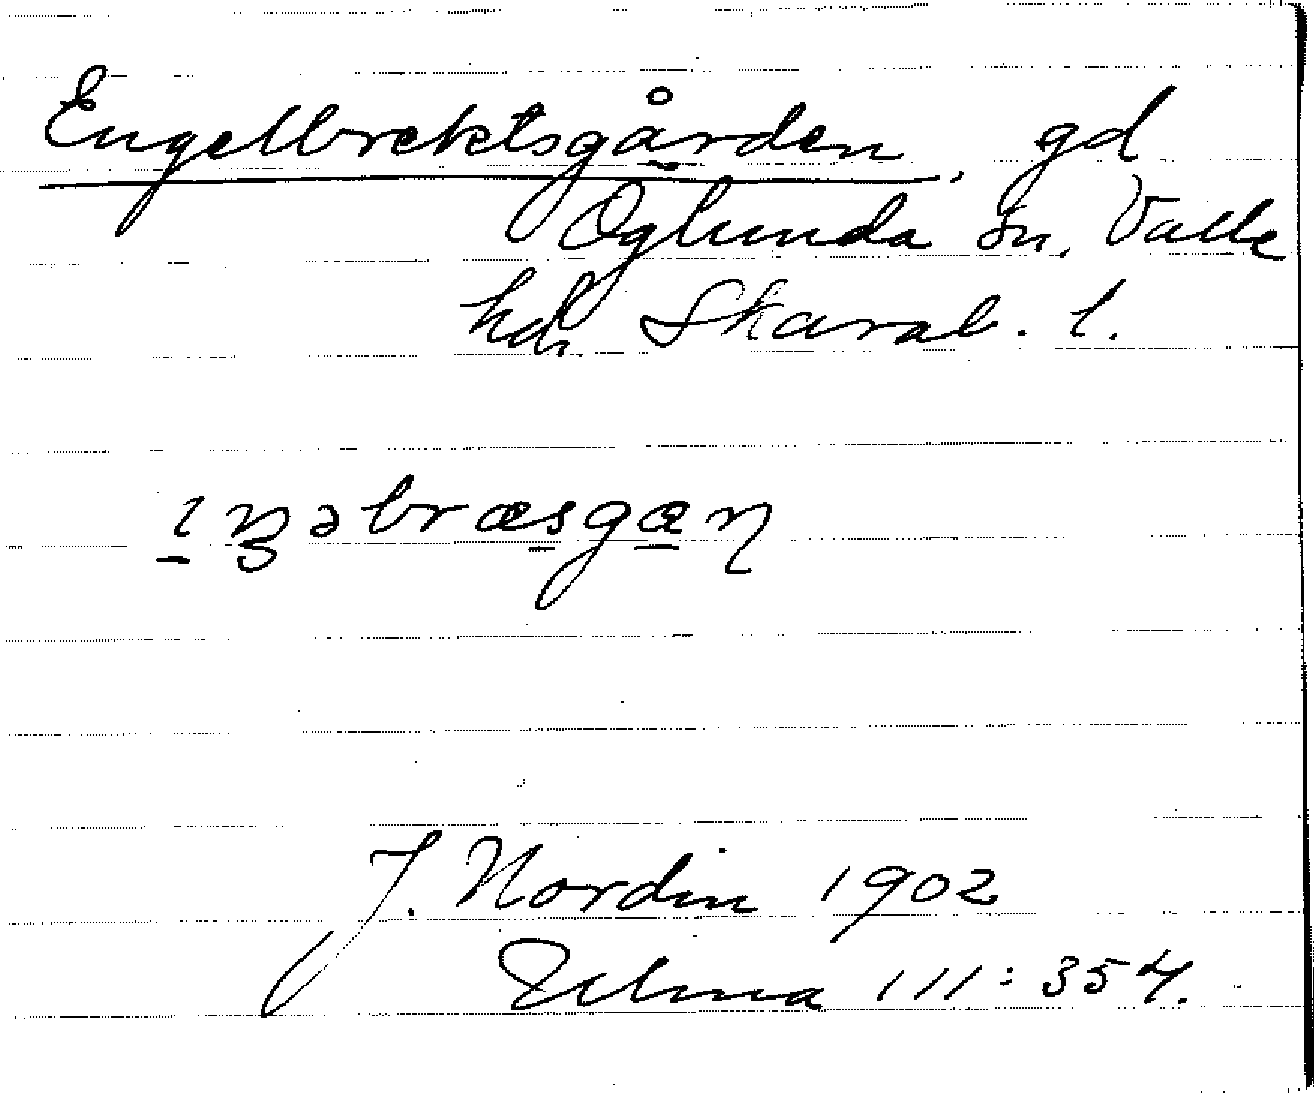 Engelbrektsgården, gd
Öglunda sn, Valle
hd, Skarab. l.
ıŋəbræsgæɳ
J. Nordin 1902
Ulma 111:354.